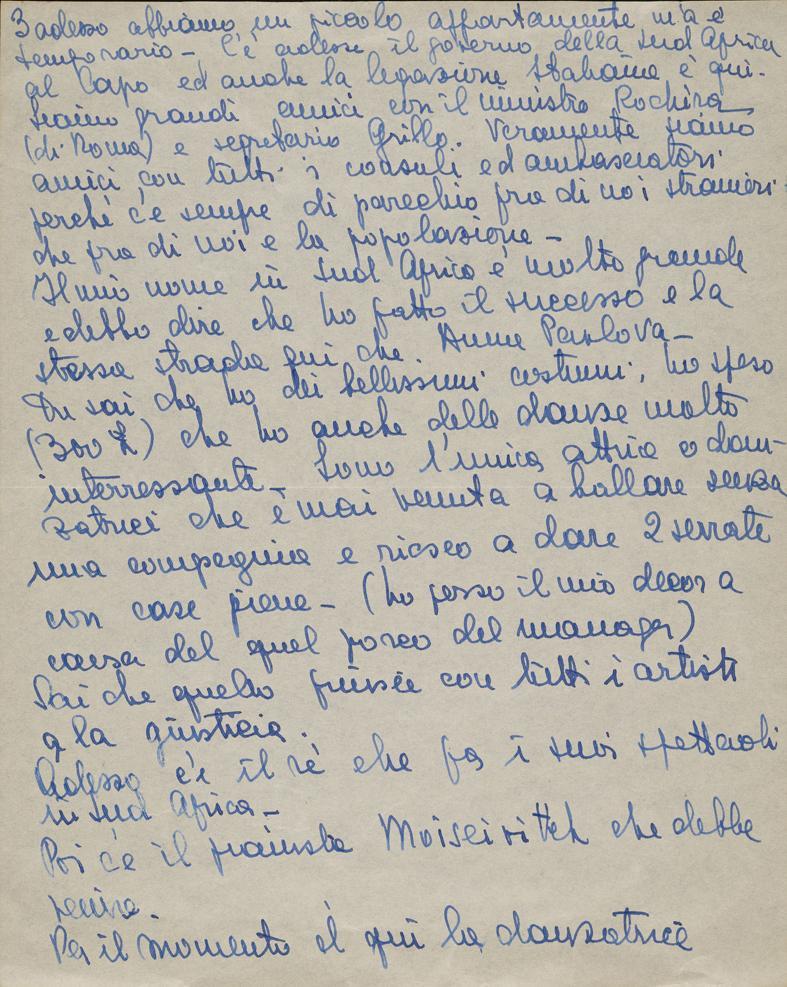 3 adesso abbiamo un piccolo appartamente m'a é
temporario – C'é adesso il governo della Sud Africa
al Capo ed anche la legazione Italiana é qui.
siamo grandi amici con il ministro Rochira
(di Roma) e segretario Grillo. Veramente siamo
amici con tutti i consuli ed ambasciatori
perché c'e sempre di parecchio fra di noi stranieri
che fra di noi e la popolazione –
Il mio nome in Sud Africa é molto grande
e debbo dire che ho fatto il successo e la
stessa strada qui che Anna Pavlova –
Tu sai che ho dei bellissimi costumi, ho speso
(300 £) che ho anche delle danze molto
interressante – Sono l'unica attrice o dan-
zatrici che é mai venuta a ballare senza
una compagnia e riesco a dare 2 serrate
con case piene – (ho perso il mio decor a
causa del quel porco del manager)
Sai che quello con tutti i artisti
a la giustizia.
Adesso c'é il ré che fa i suoi spettacoli
in Sud Africa –
Poi c'é il pianista Moiseivitch che debbe
venire.
Per il momento é qui la danzatrice